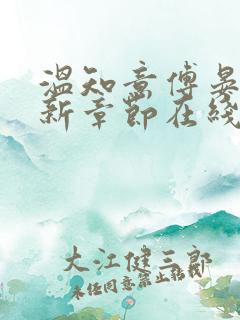 温知意傅晏
新章節在綫
大江健三郎
未经同意禁止转载